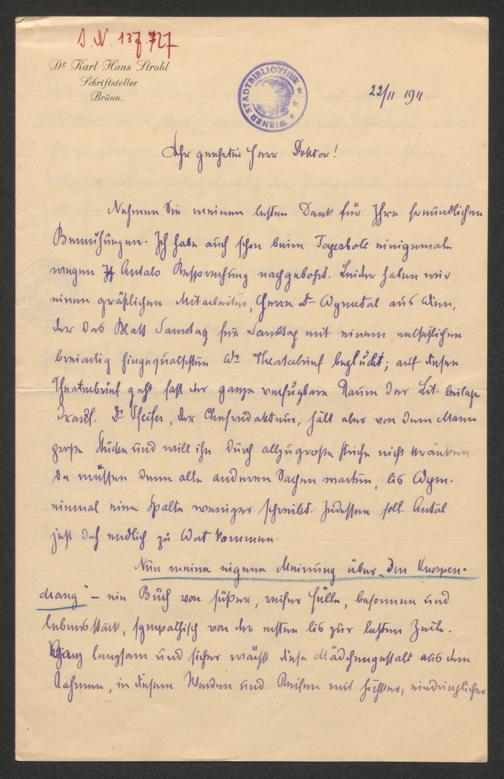 J. N. 137 727
Dr Karl Hans Strobl
Schriftsteller
Brünn.
WIENER STADTBIBLIOTHEK
22/II 1911
Sehr geehrter Herr Doktor!
Nehmen Sie meinen besten Dank für Ihre freundlichen
Bemühungen. Ich habe auch schon beim Tagesboten einigemale
wegen Antals Besprechung nachgebohrt. Leider haben wir
einen gräßlichen Mitarbeiter, Herrn Dr aus Wien,
der das Blatt Samstag für Samstag mit einem entsetzlichen
breiartig hingequatschten Theaterbrief beglückt; auf diesen
Theaterbrief geht fast der ganze verfügbare Raum der Lit. beilage
drauf. Dr , der Chefredakteur, hält aber von dem Manne
große Stücke und will ihn durch allzugroße Striche nicht kränken.
Da müssen denn alle anderen Sachen warten, bis Wym.
einmal eine Spalte weniger schreibt. Indessen soll Antal
jetzt doch endlich zu Wort kommen.
Nun meine eigene Meinung über „Den Knospen-
drang" – ein Buch von süßer, reifer Fülle, besonnen und
lebensstark, sympathisch von der ersten bis zur letzten Zeile.
Ganz langsam und sicher wächst diese Mädchengestalt aus dem
Rahmen, in diesem Werden und Reifen mit , eindringlicher